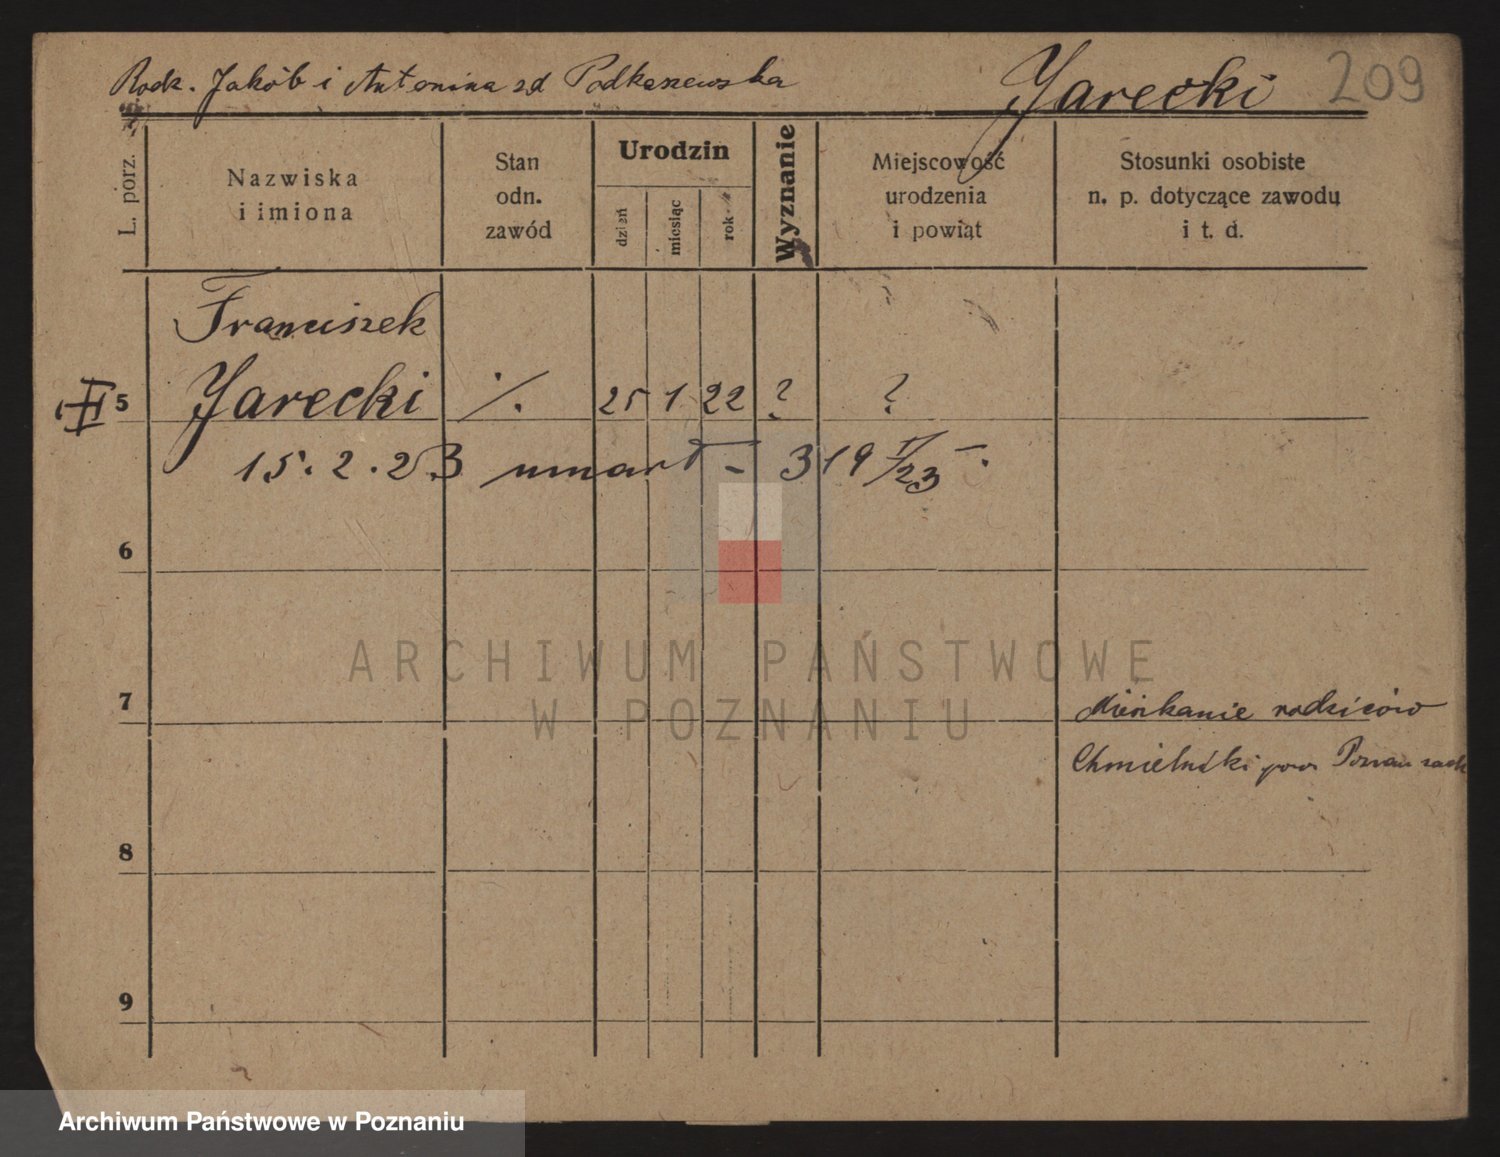 Rodz. Jakób i Antonina zd Podkaszewska
Jarecki 209
L. porz.
Nazwiska
i imiona
Stan
odn.
zawód
Urodzin
dzień
miesiąc
rok
Wyznanie
Miejscowość
urodzenia
i powiąt
Stosunki osobiste
n. p. dotyczące zawodu
i t. d.
Franciszek
II 5 Jarecki ·/. 25 1 22 ? ?
15. 2. 23 umarł - 319 I/23 -.
6
7
Mieszkanie rodziców
Chmielniki pow Poznań zach
8
9
ARCHIWUM PAŃSTWOWE
W POZNANIU
Archiwum Państwowe w Poznaniu